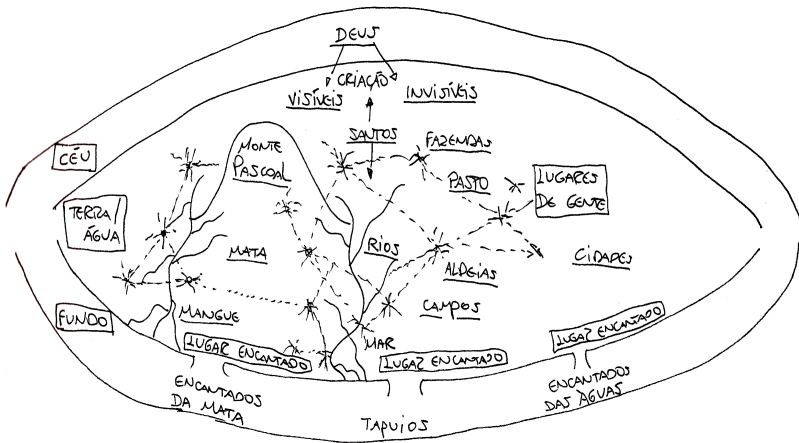 DEUS
CRIAÇÃO
VISÍVEIS
INVISÍVEIS
SANTOS
FAZENDAS
CÉU
MONTE
PASCOAL
PASTO
LUGARES
DE GENTE
TERRA/
ÁGUA
MATA
RIOS
ALDEIAS
CIDADES
CAMPOS
FUNDO
MANGUE
MAR
LUGAR ENCANTADO
LUGAR ENCANTADO
LUGAR ENCANTADO
ENCANTADOS
DA MATA
TAPUIOS
ENCANTADOS
DAS ÁGUAS